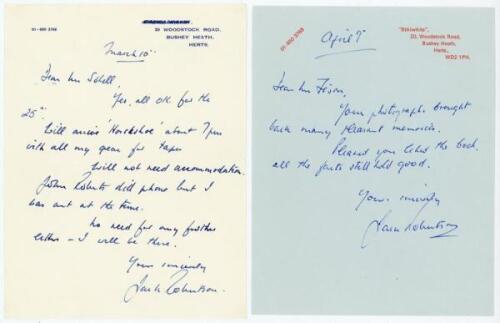 01-950 3768
23 WOODSTOCK ROAD,
BUSHEY HEATH,
HERTS.
March 10th
Dear Mr Schell,
Yes, all OK for the
25th
Will arrive 'Horseshoe' about 7pm
with all my gear for
Will not need accommodation.
John Roberts did phone but I
was out at the time.
No need for any further
letter - I will be there.
Yours sincerely
Jack Robertson.
01-950 3768
23, Woodstock Road,
Bushey Heath,
Herts.,
WD2 1PH.
April 9th
Dear Mr
Your photographs brought
back many pleasant memories.
Pleased you liked the book,
all the facts still hold good.
Yours sincerely
Jack Robertson